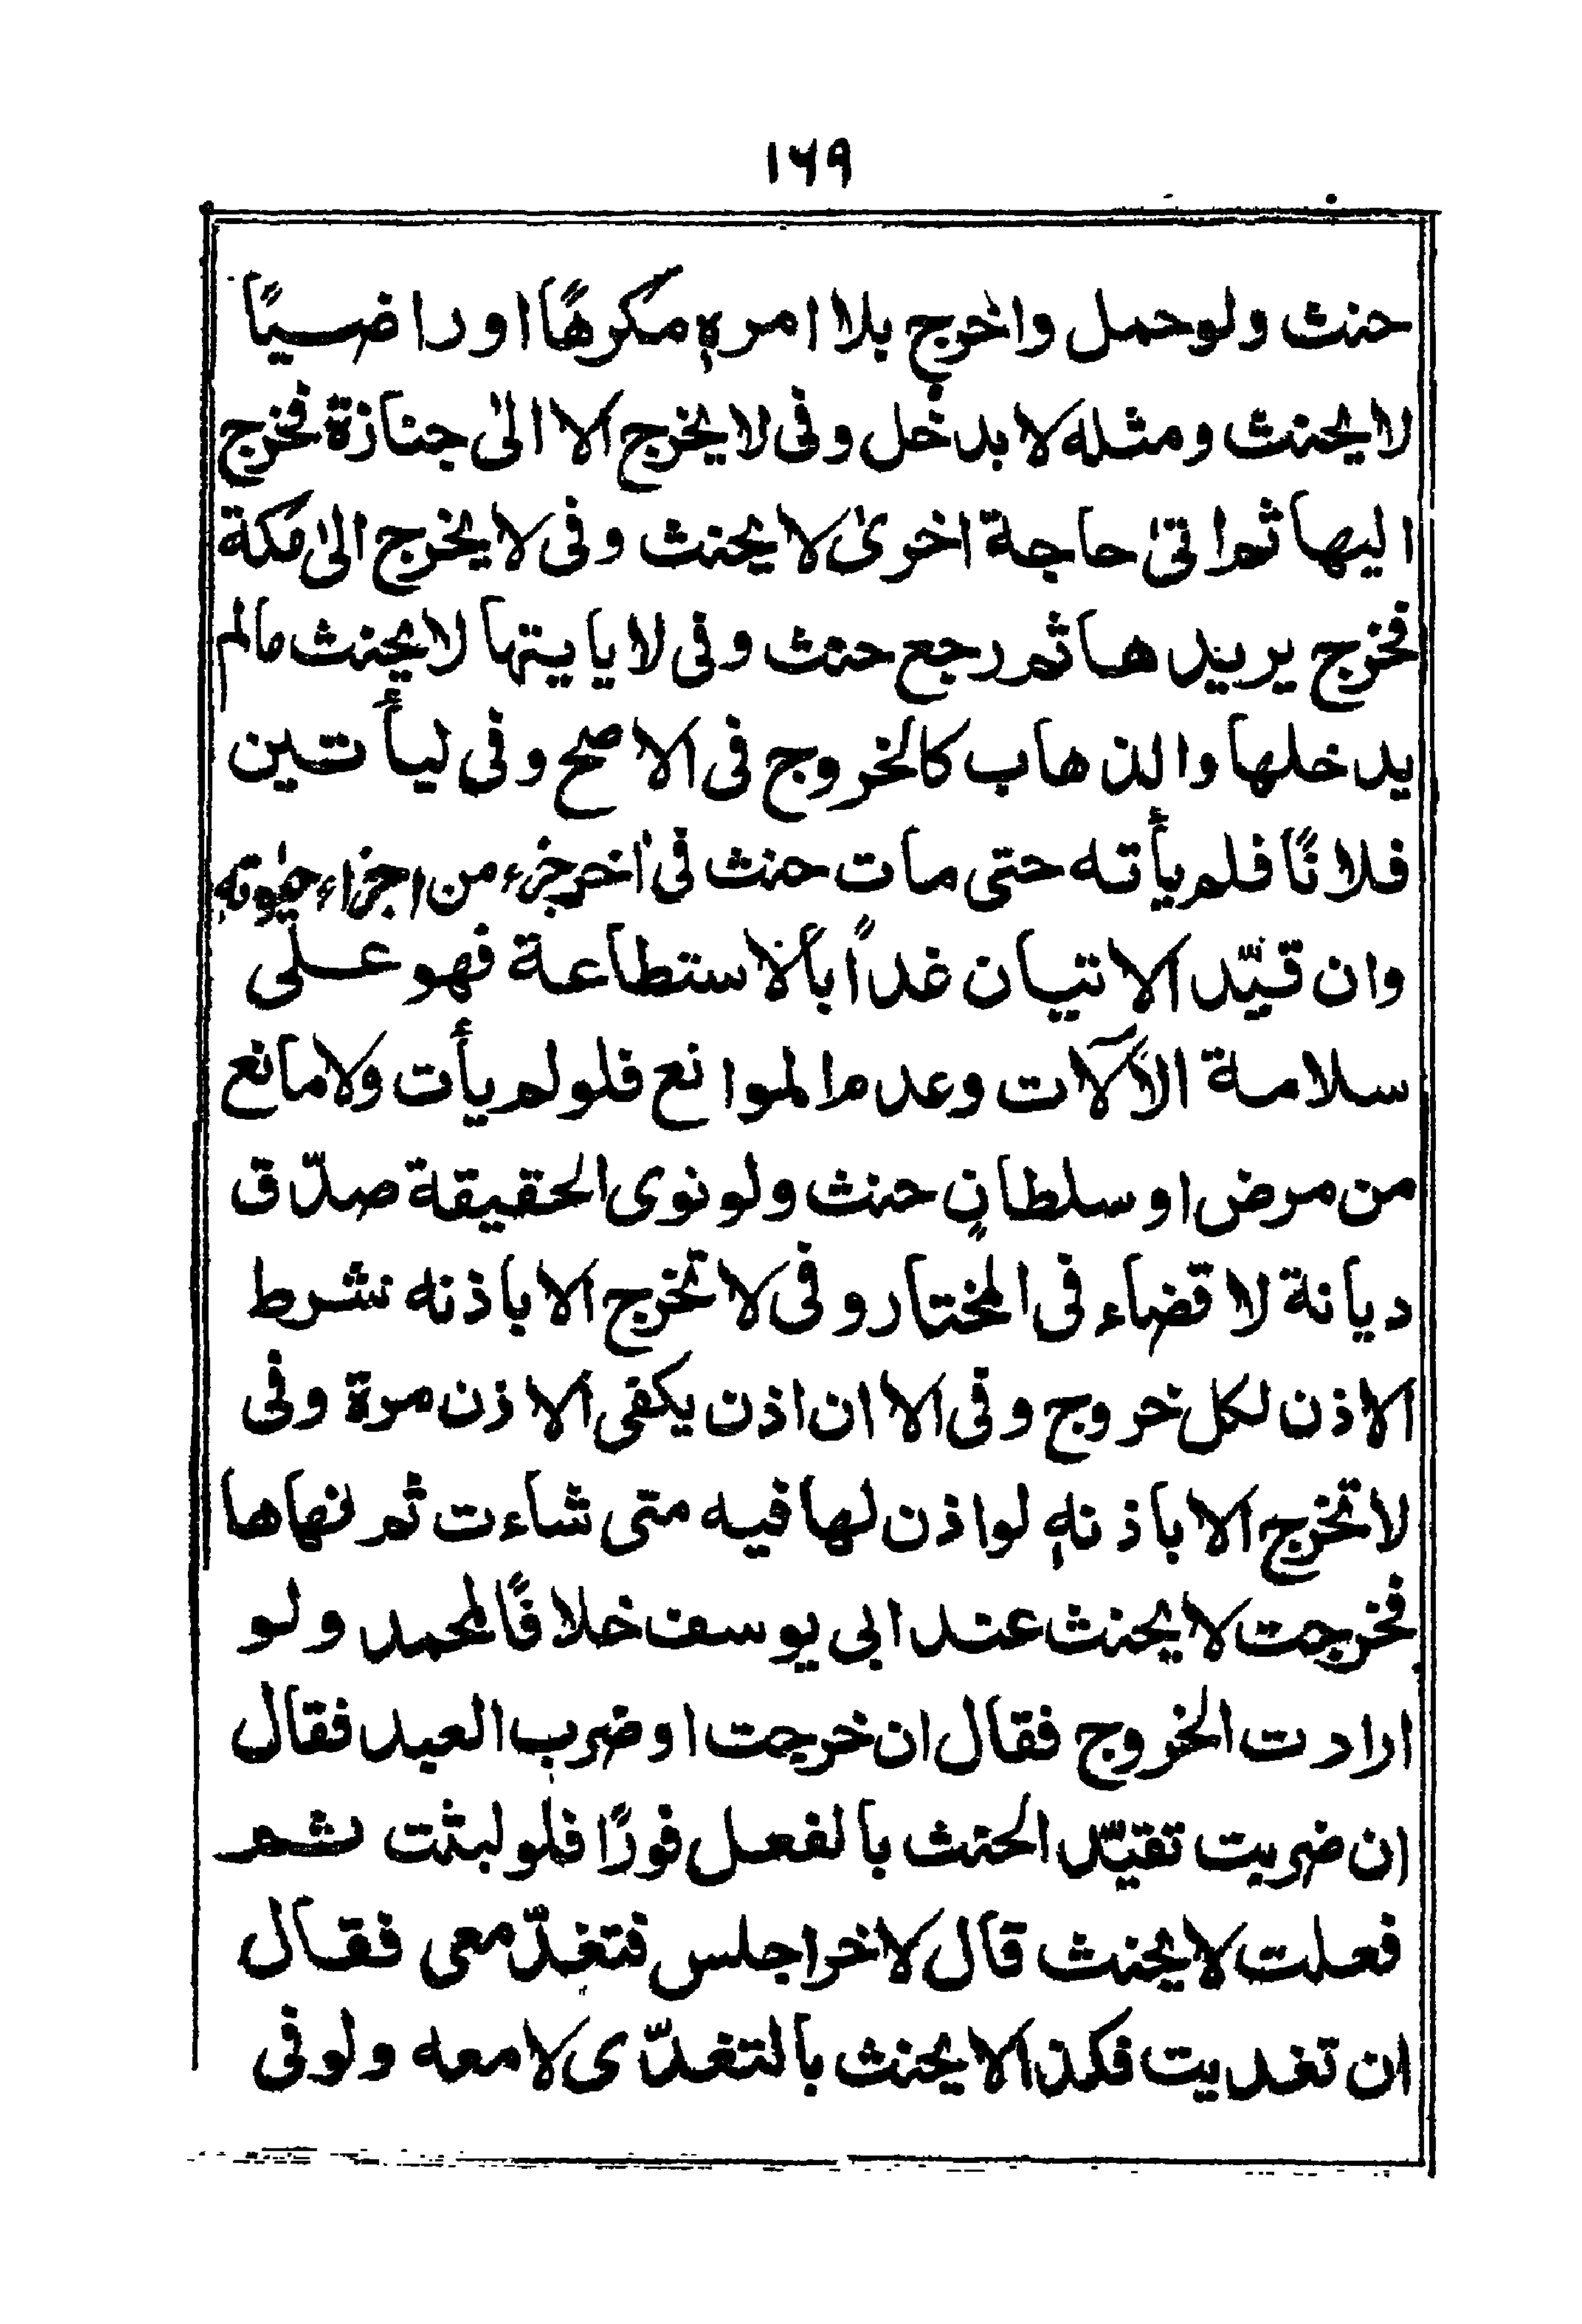 ١٦٩
حنث ولو حمل واخرج بلا امرهٖ مكرهًا او راضيًا
لا يحنث ومثله لا يدخل وفى لا يخرج الا الىٰ جنازة فخرج
اليها ثم اتىٰ حاجة اخرىٰ لا يحنث وفى لا يخرج الىٰ مكة
فخرج يريدها ثم رجع حنث وفى لا ياتيها لا يحنث مالم
يدخلها والذهاب كالخروج فى الاصح وفى ليأتين
فلانًا فلم يأته حتى مات حنث فى اٰخر جزء من اجزاء حيٰوتهٖ
وان قيّد الاتيان غداً بالاستطاعة فهو على
سلامة الآلات وعدم الموانع فلو لم يأت ولا مانع
من مرض او سلطانٍ حنث ولو نوى الحقيقة صدّق
ديانة لا قضاء فى المختار وفى لا تخرج الا باذنه شرط
الاذن لكل خروج وفى الا ان اذن يكفى الاذن مرة وفى
لا تخرج الا باذنهٖ لو اذن لها فيه متى شاءت ثم نهاها
فخرجت لا يحنث عند ابى يوسف خلافًا لمحمد ولو
ارادت الخروج فقال ان خرجت او ضرب العبد فقال
ان ضربت تقيّد الحنث بالفعل فورًا فلو لبثت ثم
فعلت لا يحنث قال لاخر اجلس فتغدّ معى فقال
ان تغديت فكذا لا يحنث بالتغدّى لا معه ولو فى